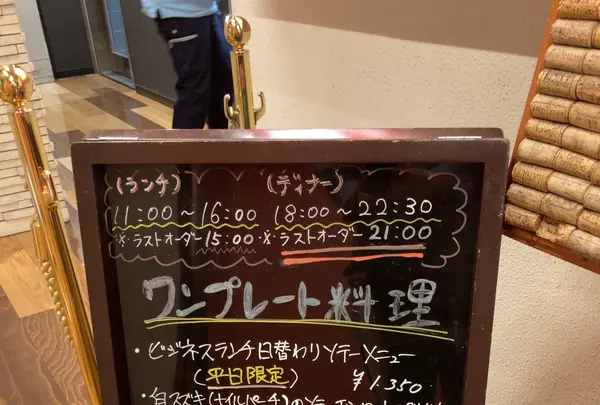 (ランチ) (ディナー)
11:00～16:00 18:00～22:30
※ラストオーダー15:00 ※ラストオーダー21:00
ワンプレート料理
・ビジネスランチ日替わりソテーメニュー
(平日限定) ¥1.350
・白スズキ(ナイルパーチ)の